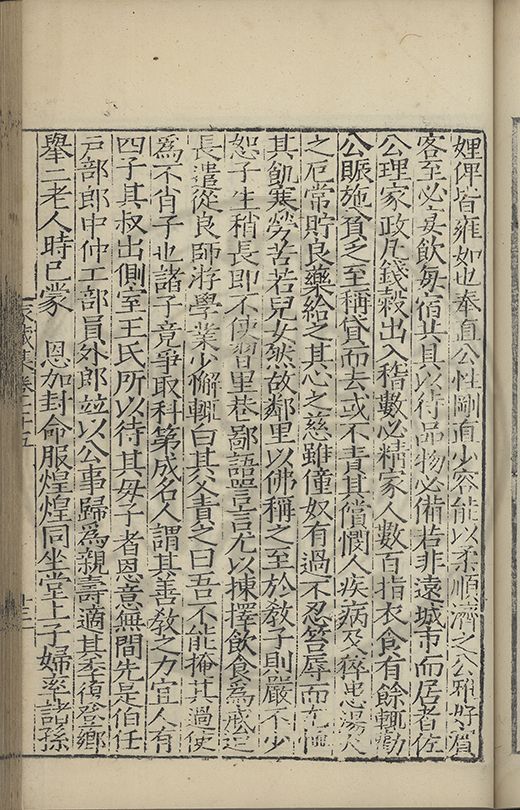 娌俾皆雍如也奉直公性剛直少容能以柔順濟之公雅好賓
客至必宴飲每宿共具以待品物必備若非遠城市而居者佐
公理家政凡錢穀出入稽數必精家人數百指衣食有餘輒勸
公賑施貧乏至稱貸而去或不責其償憫人疾病及猝患湯火
之厄常貯良藥給之其心之慈雖僮奴有過不忍笞辱而尤恤
其飢寒勞苦若兒女然故鄰里以佛稱之至於教子則嚴不少
恕子生稍長即不使習里巷鄙語詈言尤以揀擇飲食為戒迨
長遣從良師游學業少懈輒白其父責之曰吾不能掩其過使
爲不肖子也諸子竟爭取科第成名人謂其善教之力宜人有
四子其叔出側室王氏所以待其母子者恩意無間先是伯任
戶部郎中仲工部員外郎並以公事歸爲親壽適其季復登鄉
舉二老人時已蒙 恩加封命服煌煌同坐堂上子婦率諸孫
家藏集卷六十五